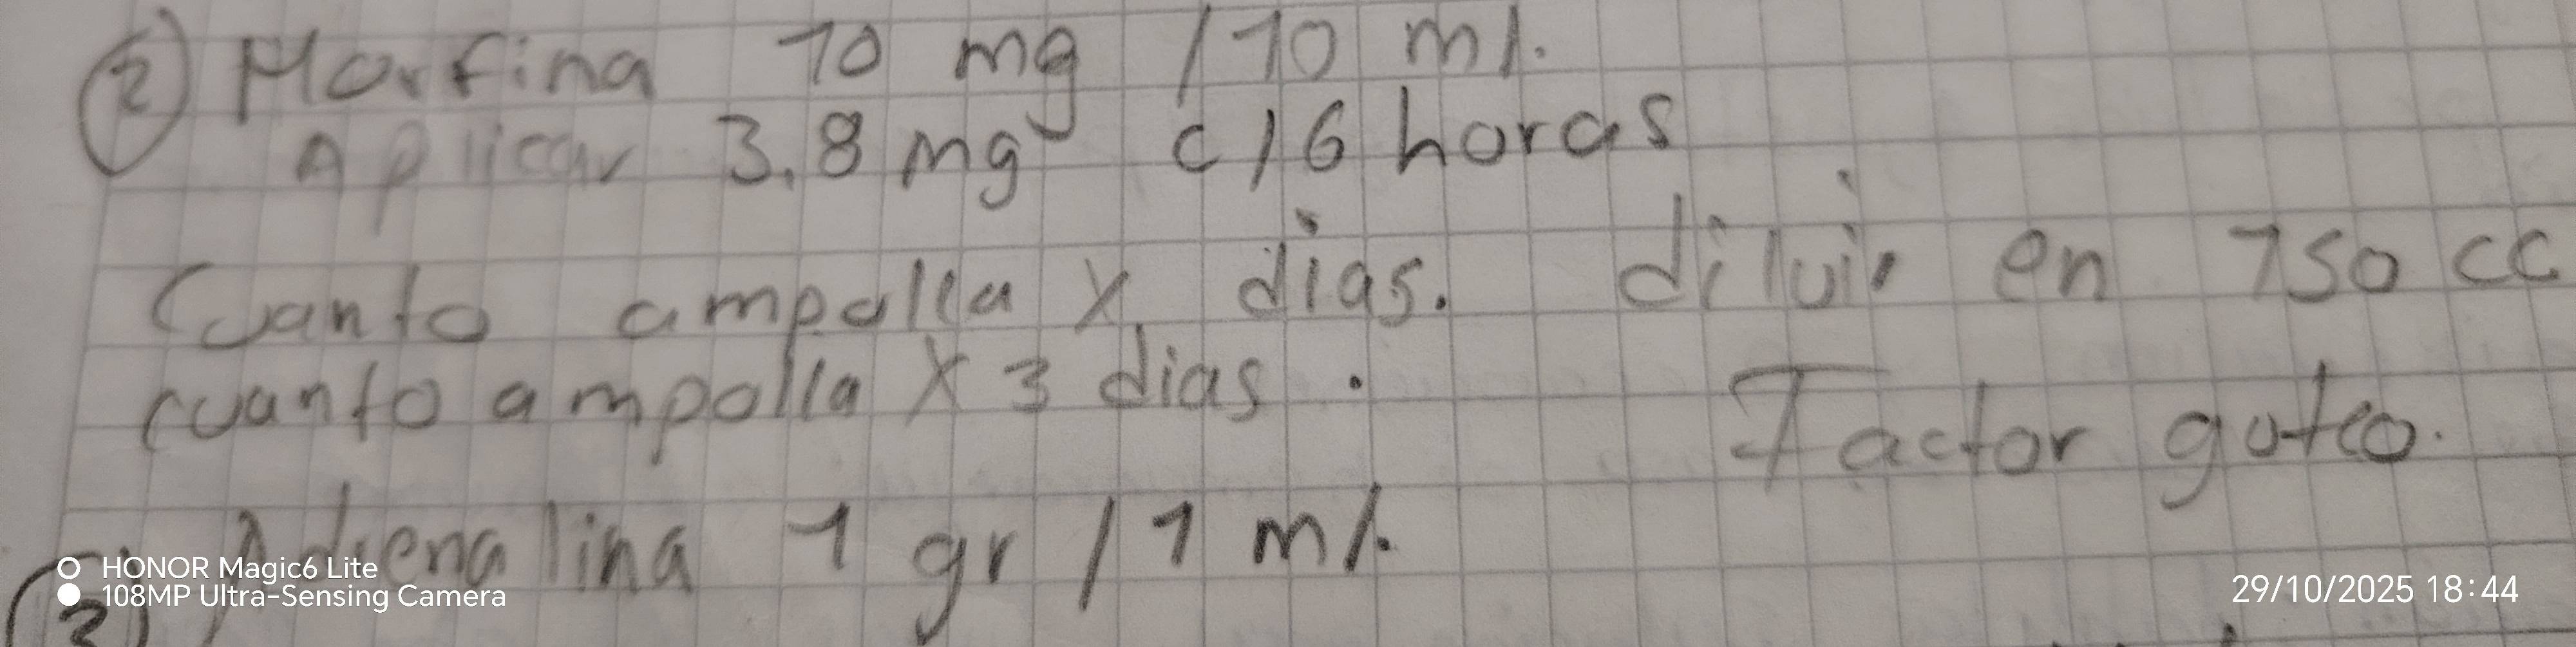 2 Morfina 10 mg / 10 ml.
Aplicar 3.8 mg c/6 horas
Cuanto ampolla x dias. diluir en 750 cc
cuanto ampolla x 3 dias. Factor goteo.
Adrenalina 1 gr / 1 ml.
HONOR Magic6 Lite
108MP Ultra-Sensing Camera
29/10/2025 18:44